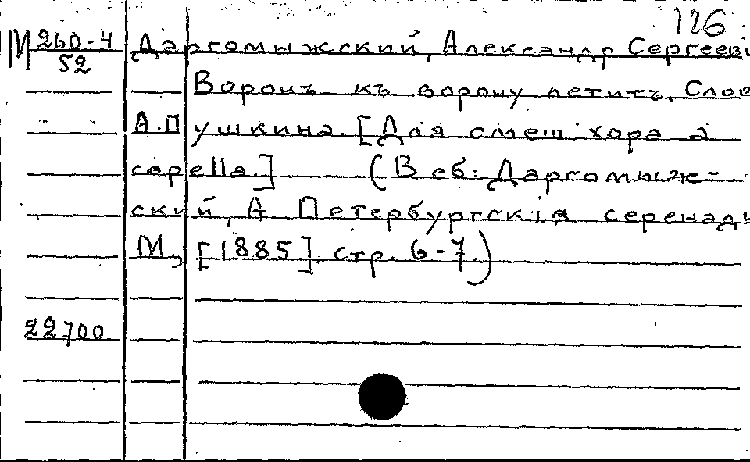 126
М 260-4 Даргомыжский, Александр Сергееви
52
Воронъ къ ворону летитъ. Слов
А. Пушкина. [Для смеш. хора a
capella.] (В сб: Даргомыж-
ский, А. Петербургскiя серенады
М, [1885] стр. 6-7.)
22700